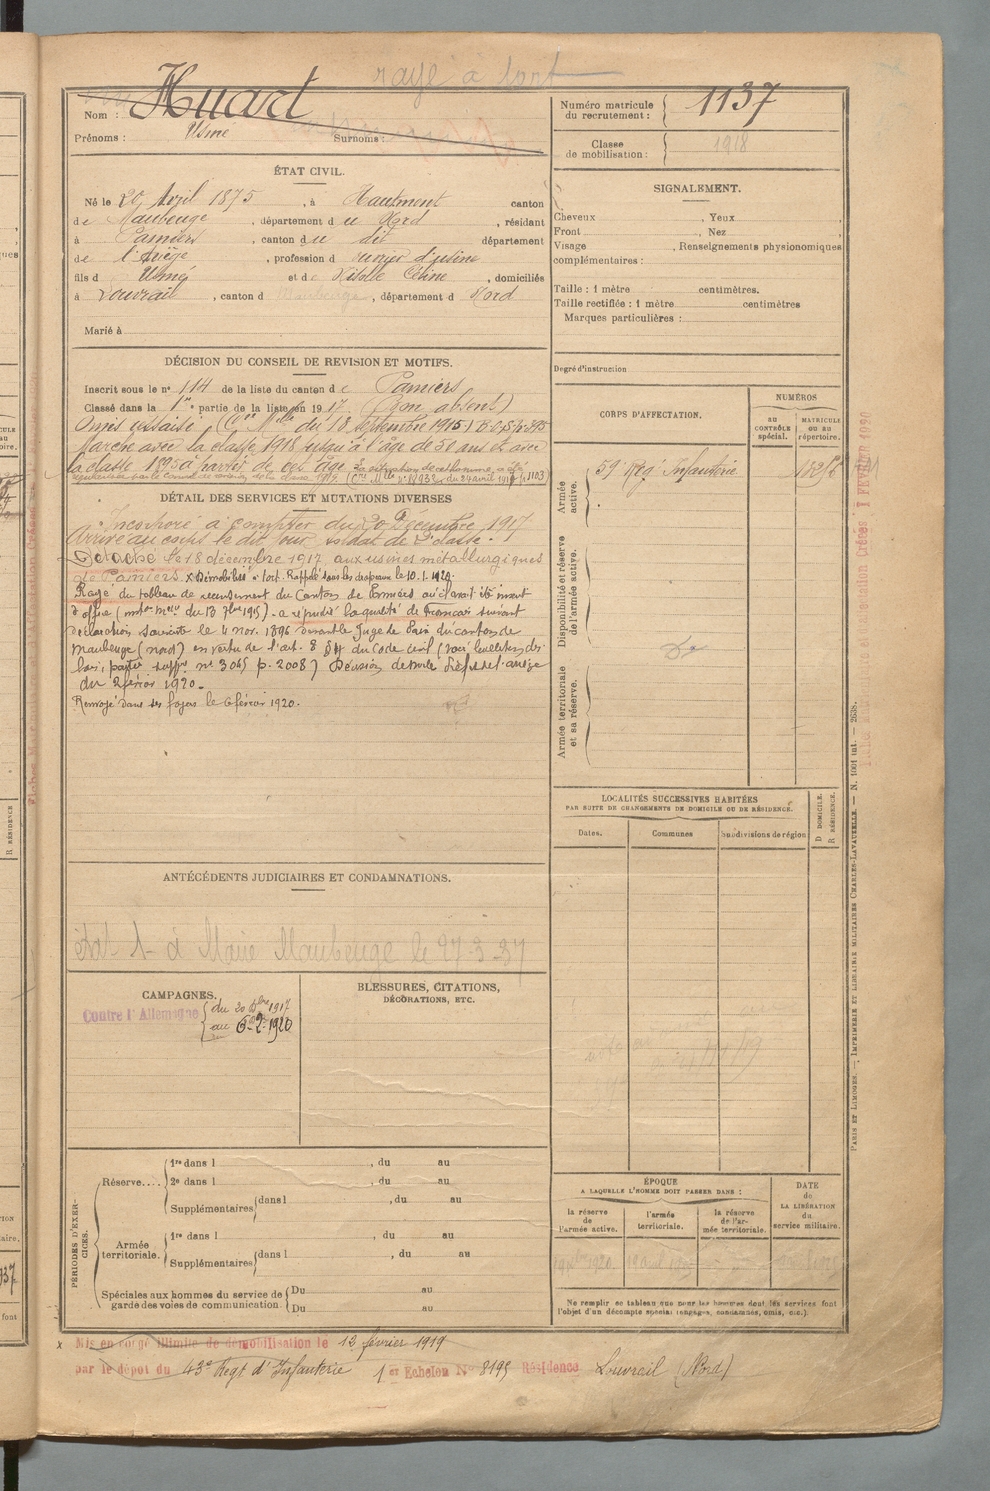 rayé à tort
Nom : Huart
Prénoms : Usmé Surnoms :
Numéro matricule du recrutement : 1137
Classe de mobilisation : 1918
ÉTAT CIVIL.
Né le 20 Avril 1875, à Hautmont canton
de Maubeuge, département du Nord, résidant
à Pamiers, canton du dit département
de l'Ariège, profession d'ouvrier d'usine
fils d Usmé et de Céline, domiciliés
à Louvroil, canton d Maubeuge, département d Nord
Marié à
SIGNALEMENT.
Cheveux , Yeux
Front , Nez
Visage , Renseignements physionomiques
complémentaires :
Taille : 1 mètre centimètres.
Taille rectifiée : 1 mètre centimètres
Marques particulières :
Degré d'instruction
DÉCISION DU CONSEIL DE REVISION ET MOTIFS.
Inscrit sous le n° 114 de la liste du canton de Pamiers
Classé dans la 1re partie de la liste en 1917 (Bon absent)
Omis (Cre Mlle du 18 septembre 1915
Marche avec la classe 1918 jusqu'à l'âge de 50 ans et avec
la classe 1895 à partir de cet âge. La situation de cet homme a été
régularisée par le conseil de revision de la classe (Cre Mlle n° du 24 avril
DÉTAIL DES SERVICES ET MUTATIONS DIVERSES
Incorporé à compter du 20 Décembre 1917
Arrivé au corps le dit jour soldat de 2e classe.
Détaché le 18 décembre 1917 aux usines métallurgiques
de Pamiers. x Démobilisé à tort. Rappelé sous les drapeaux le 10.1.1920.
Rayé du tableau de recensement du Canton de Pamiers où il avait été inscrit
d'office du 13 7bre 1915) - a répudié la qualité de Français suivant
déclaration souscrite le 4 nov. 1896 devant le Juge de Paix du canton de
Maubeuge (nord) en vertu de l'art. 8 § 4 du Code civil (voir bulletin des
lois, partie suppre n° 3045 p. 2008) Décision de M. le Préfet de l'Ariège
du 2 février 1920.
Renvoyé dans ses foyers le 6 février 1920.
CORPS D'AFFECTATION.
NUMÉROS
AU CONTRÔLE spécial.
MATRICULE OU AU répertoire.
Armée active.
59 Régt Infanterie
Disponibilité et réserve de l'armée active.
Armée territoriale et sa réserve.
LOCALITÉS SUCCESSIVES HABITÉES
PAR SUITE DE CHANGEMENTS DE DOMICILE OU DE RÉSIDENCE.
Dates.
Communes
Subdivisions de région
D DOMICILE.
R RÉSIDENCE.
ANTÉCÉDENTS JUDICIAIRES ET CONDAMNATIONS.
état 1 à Maire Maubeuge le 27-3-37
CAMPAGNES.
Contre l'Allemagne
du 20 Dbre 1917
au 6-2-1920
BLESSURES, CITATIONS,
DÉCORATIONS, ETC.
PÉRIODES D'EXERCICES.
Réserve....
1re dans l , du au
2e dans l , du au
Supplémentaires dans l , du au
Armée territoriale.
1re dans l , du au
Supplémentaires dans l , du au
Spéciales aux hommes du service de
garde des voies de communication.
Du au
Du au
ÉPOQUE
A LAQUELLE L'HOMME DOIT PASSER DANS :
la réserve de l'armée active.
l'armée territoriale.
la réserve de l'armée territoriale.
DATE de LA LIBÉRATION du service militaire.
Ne remplir ce tableau que pour les hommes dont les services font
l'objet d'un décompte spécial (engagés, condamnés, omis, etc.).
x Mis en congé illimité de démobilisation le 12 février 1919
par le dépôt du 43e Regt d'Infanterie 1er Echelon N° 8195 Résidence Louvroil (Nord)
PARIS ET LIMOGES. — IMPRIMERIE ET LIBRAIRIE MILITAIRES CHARLES-LAVAUZELLE. — N. 1004 int. — 2638.